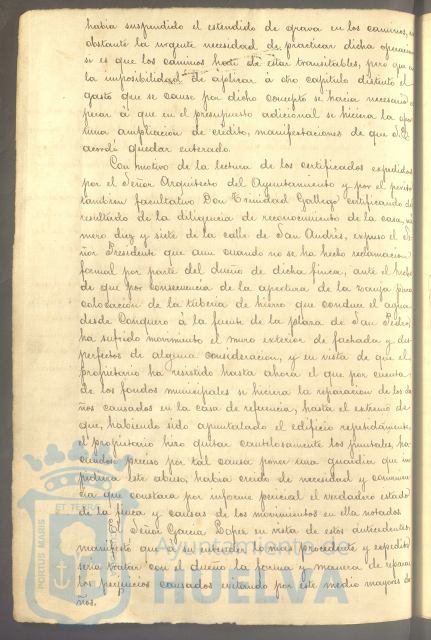 había suspendido el estendido de grava en los caminos, no
obstante la urgente necesidad de practicar dicha operacion
si es que los caminos habi de estar transitables, pero que en
la imposibilidad de aplicar á otro capitulo distinto el
gasto que se cause por dicho concepto se hacía necesario es
perar á que en el presupuesto adicional se hiciera la opor
tuna ampliacion de crédito, manifestaciones de que S.E.
acordó quedar enterado.
Con motivo de la lectura de los certificados expedidos
por el Señor Arquitecto del Ayuntamiento y por el perito
tambien facultativo Don Trinidad Gallego certificando del
resultado de la diligencia de reconocimiento de la casa, nú
mero diez y siete de la calle de San Andrés, expuso el Se
ñor Presidente que aun cuando no se ha hecho reclamacion
formal por parte del dueño de dicha finca, ante el hecho
de que por consecuencia de la apertura de la zanja para
colocacion de la tubería de hierro que conduce el agua
desde Conquero á la fuente de la plaza de San Pedro
ha sufrido movimiento el muro exterior de fachada y des
perfectos de alguna consideracion, y en vista de que el
propietario ha resistido hasta ahora el que por cuenta
de los fondos municipales se hiciera la reparacion de los da
ños causados en la casa de referencia, hasta el extremo de
que, habiendo sido apuntalado el edificio repetidamente,
el propietario hizo quitar cautelosamente los puntales, ha
ciendose preciso por tal causa poner una guardia que im
pidiera este abuso, había creido de necesidad y convenien
cia que constara por informe pericial el verdadero estado
de la finca y causas de los movimientos en ella notados.
El Señor Garcia Lopez en vista de estos antecedentes
manifestó que á su entender lo mas procedente y expedito
sería tratar con el dueño la forma y manera de reparar
los perjuicios causados evitando por este medio mayores da
ños.
PORTUS MARIS
ET TERRE
Ayuntamiento de
HUELVA